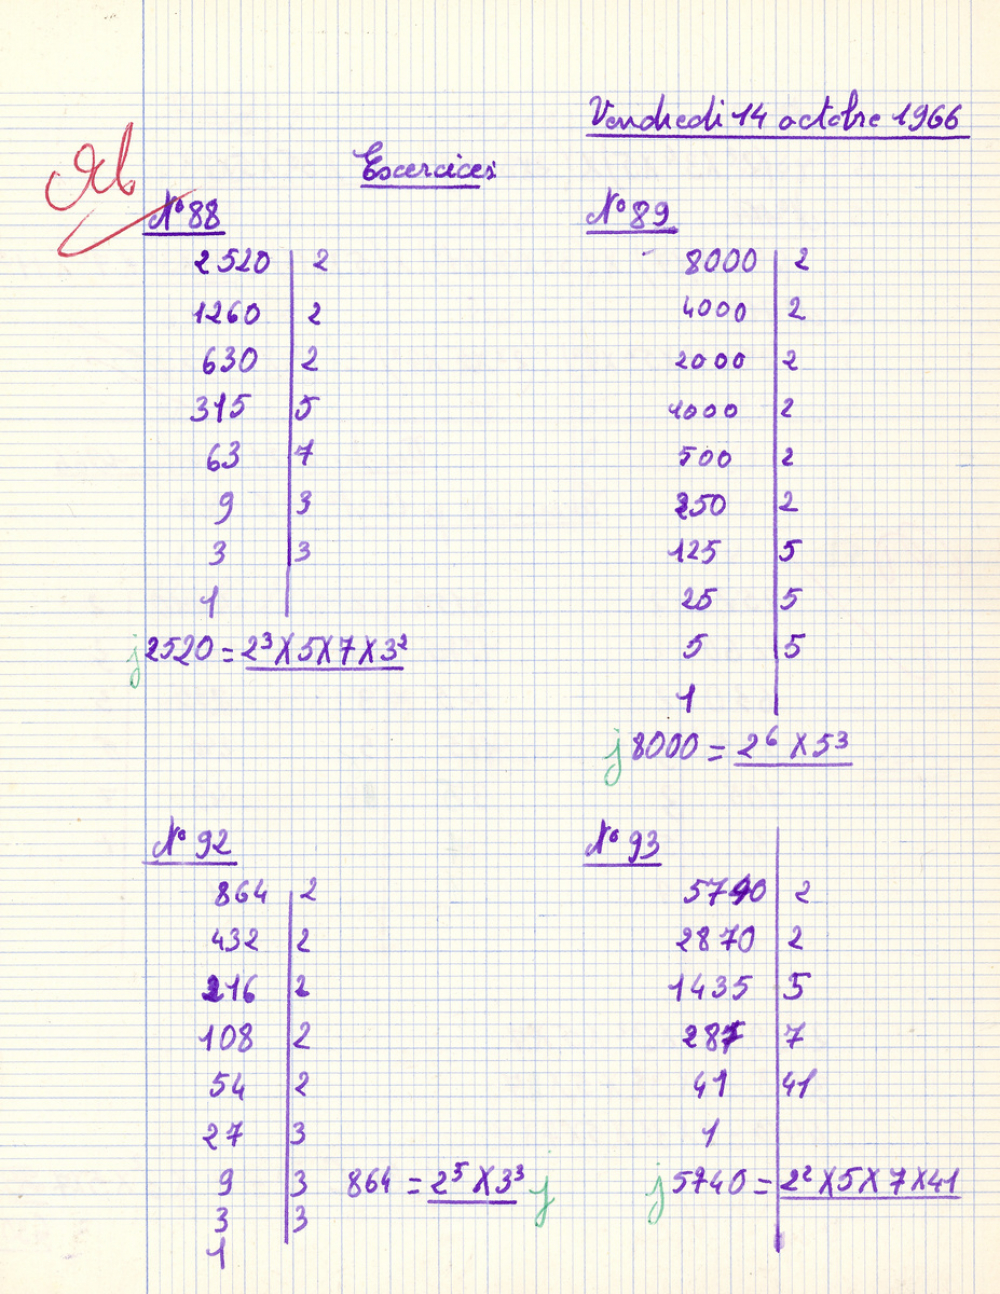 Vendredi 14 octobre 1966
Exercices
N° 88
2520 | 2
1260 | 2
630 | 2
315 | 5
63 | 7
9 | 3
3 | 3
1
j 2520 = 2³ X 5 X 7 X 3²
N° 89
8000 | 2
4000 | 2
2000 | 2
1000 | 2
500 | 2
250 | 2
125 | 5
25 | 5
5 | 5
1
j 8000 = 2⁶ X 5³
N° 92
864 | 2
432 | 2
216 | 2
108 | 2
54 | 2
27 | 3
9 | 3
3 | 3
1
864 = 2⁵ X 3³ j
N° 93
5740 | 2
2870 | 2
1435 | 5
287 | 7
41 | 41
1
j 5740 = 2² X 5 X 7 X 41